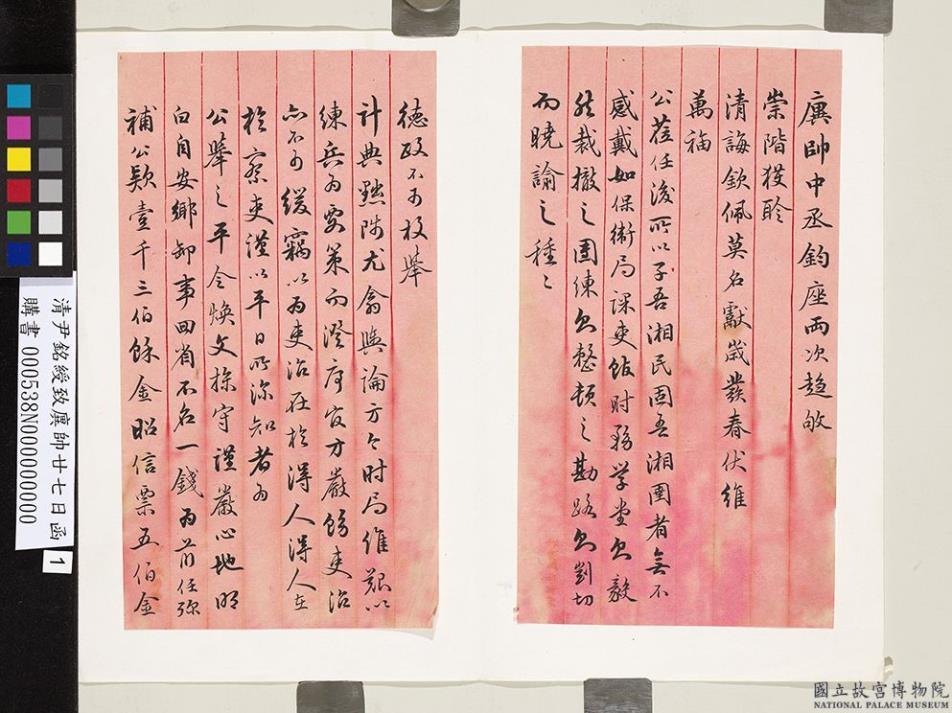 廙帥中丞鈞座兩次趨敂
崇階獲聆
清誨欽佩莫名獻歲發春伏維
萬福
公蒞任後所以子吾湘民固吾湘圉者無不
感戴如保衛局課吏館財務學堂息毅
然裁撤之團練急整頓之勘路急剴切
而曉諭之種種
德政不可枚舉
計典黜陟尤翕輿論方今時局維艱以
練兵為要策而澄府官方嚴飭吏治
亦不可緩竊以為吏治在於得人得人在
於察吏謹以平日所深知者為
公舉之平令煥文操守謹嚴心地明
白自安鄉卸事回省不名一錢為前任弥
補公款壹千三伯餘金昭信票五伯金
清尹銘綬致廙帥廿七日函
購書 000538N000000000
1
國立故宮博物院
NATIONAL PALACE MUSEUM